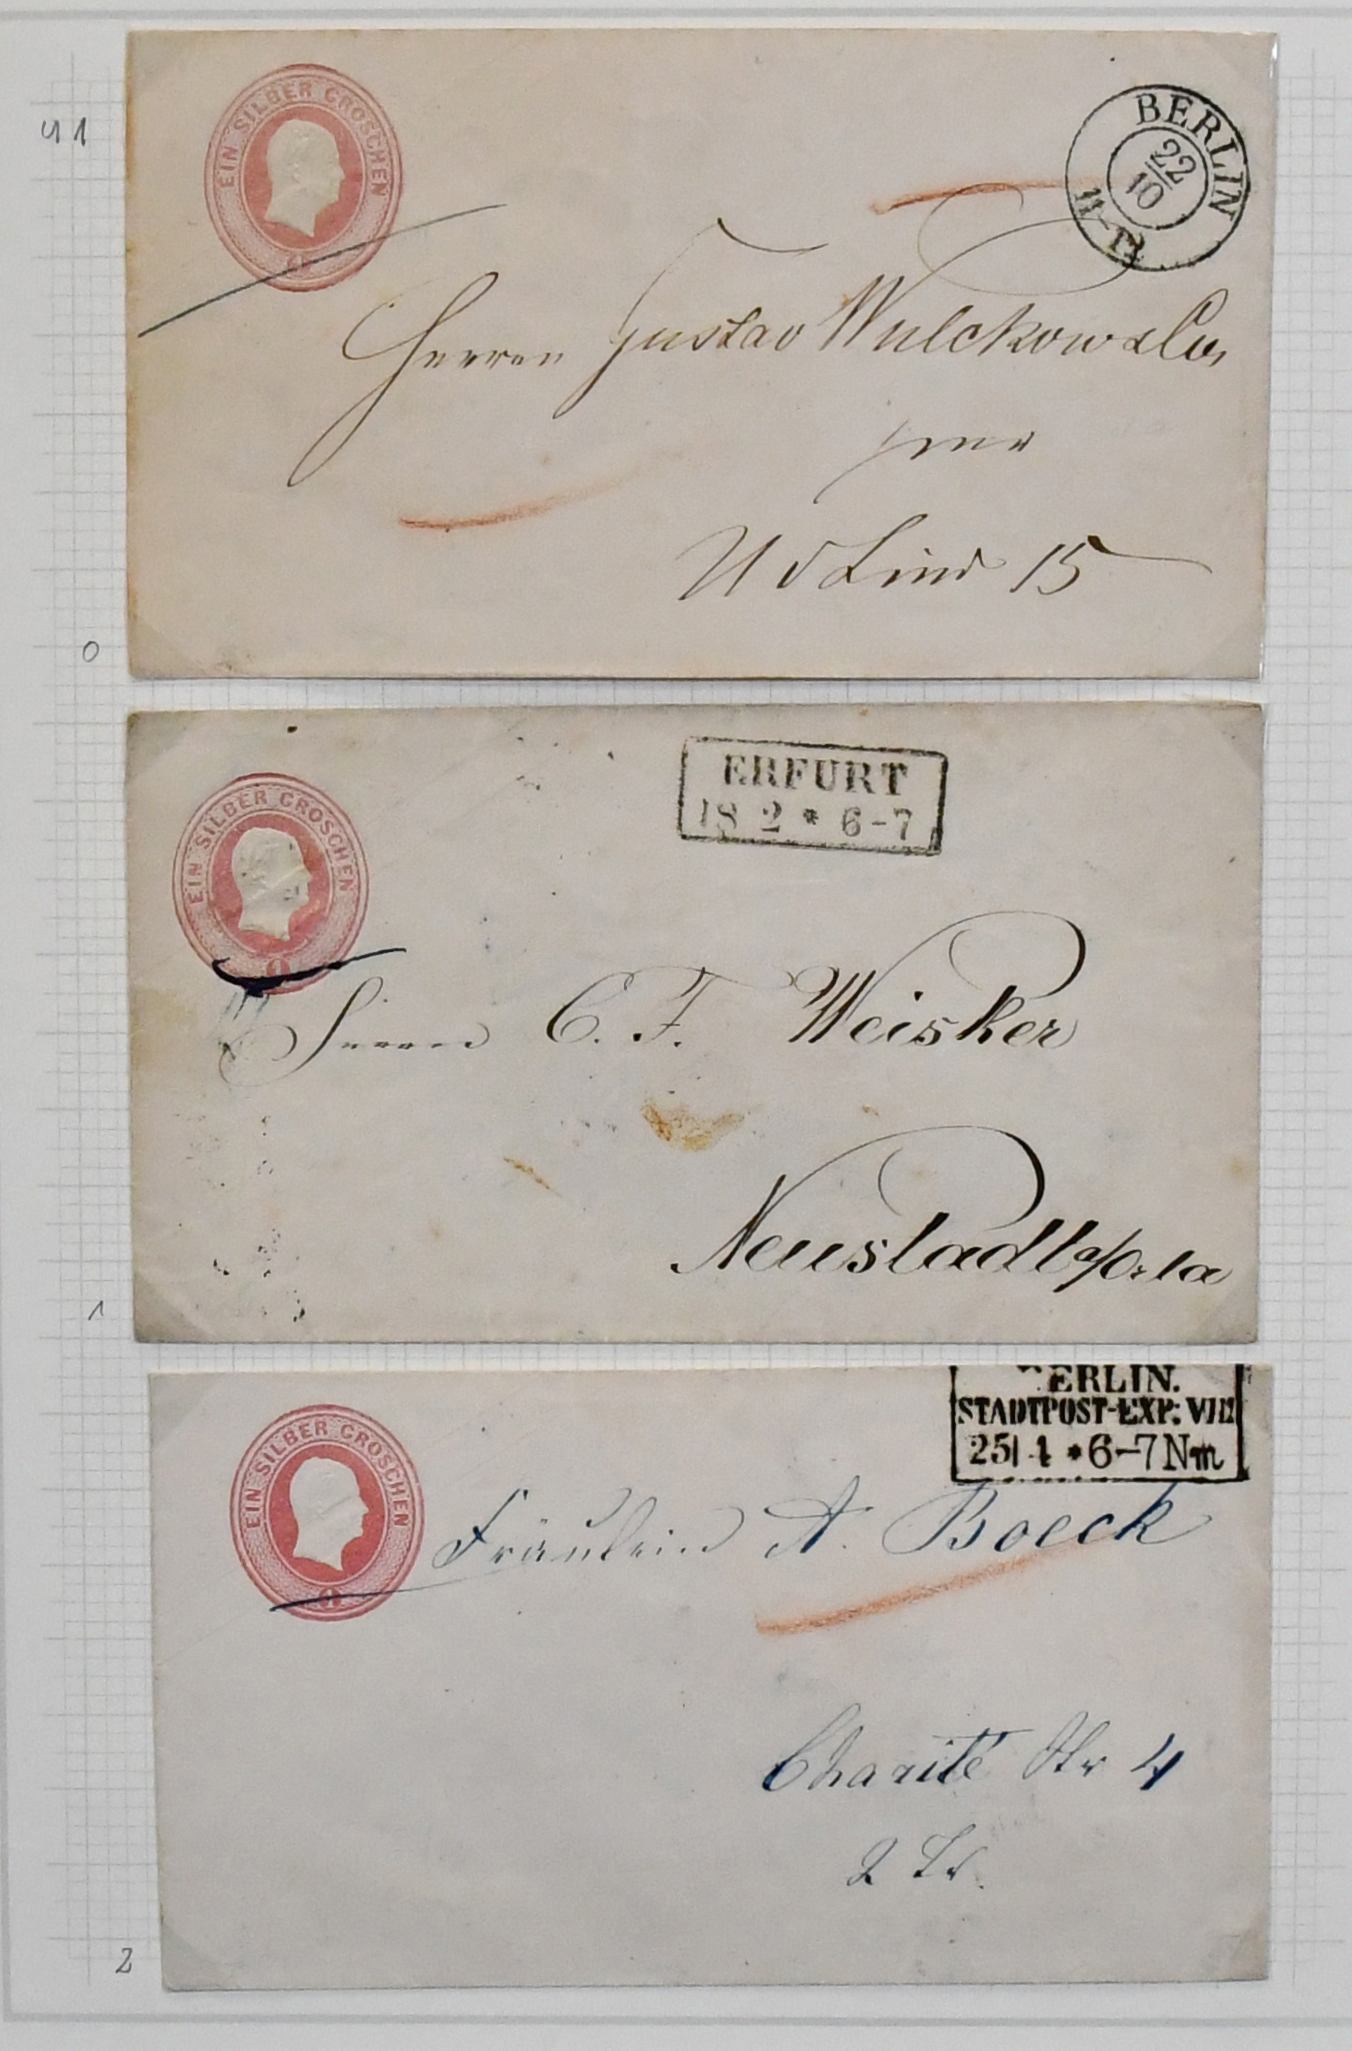 41
EIN SILBER GROSCHEN
1
BERLIN
22
10
11-12
Herren Gustav Wulckow & Co,
hier
U d Lind 15
0
EIN SILBER GROSCHEN
1
ERFURT
18 2 * 6-7
Herrn C. F. Weisker
Neustadt a/Orla
1
EIN SILBER GROSCHEN
1
BERLIN.
STADTPOST-EXP: VIII
25|4 * 6-7 Nm
Fräulein A. Boeck
Charité Str 4
2 Tr.
2